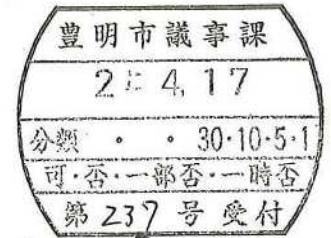 豊明市議事課
2. 4. 17
分類 ・ ・ 30・10・5・1
可・否・一部否・一時否
第 237 号 受付